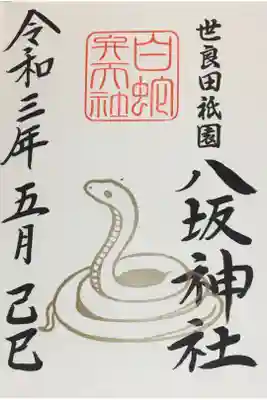 世良田祇園
八坂神社
白蛇
弁天社
令和三年五月 己巳